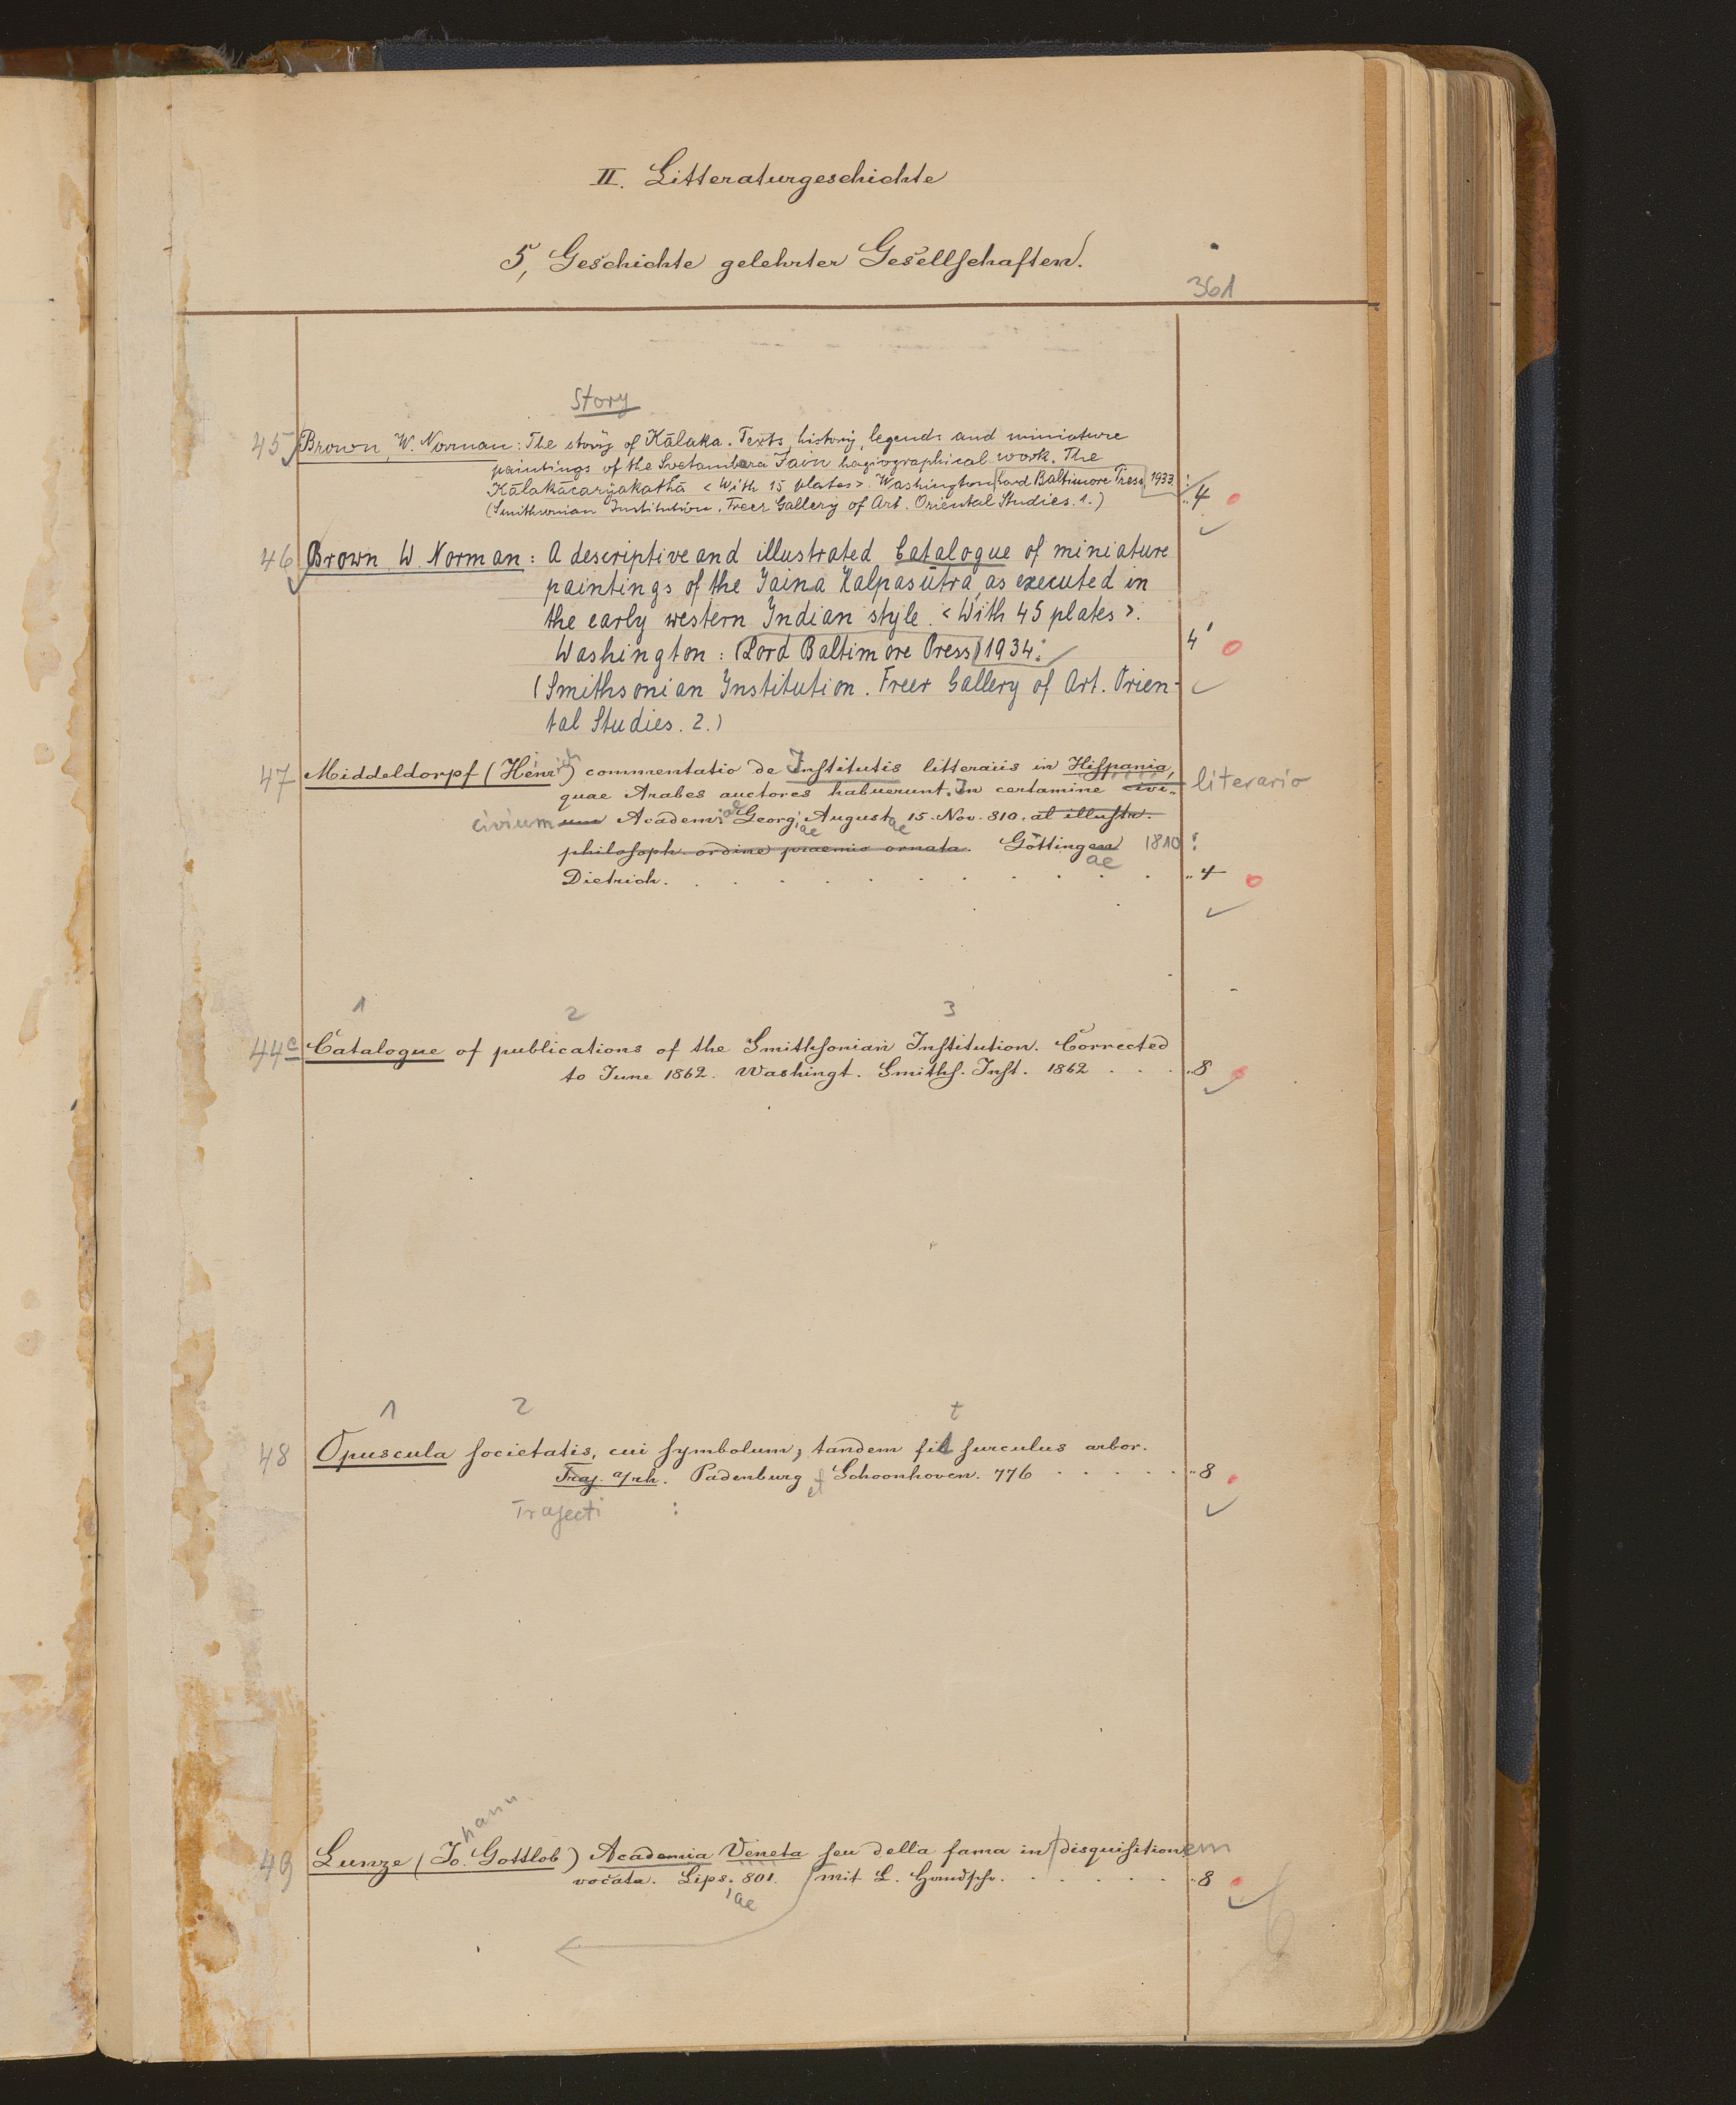 II. Litteraturgeschichte
5, Geschichte gelehrter Gesellschaften.
361
Story
45 Brown, W. Norman: The story of Kālaka. Texts, history, legends and miniature
paintings of the Svetambara Jain hagiographical work. The
Kālakācaryakathā <With 15 plates>. Washington Lord Baltimore Press 1933:
(Smithsonian Institution. Freer Gallery of Art. Oriental Studies. 1.) „4
46 Brown W. Norman: A descriptive and illustrated Catalogue of miniature
paintings of the Jaina Kalpasūtra, as executed in
the early western Indian style. <With 45 plates>.
Washington: (Lord Baltimore Press) 1934: 4'
(Smithsonian Institution. Freer Gallery of Art. Orien-
tal Studies. 2.)
47 Middeldorpf (Henrich) commentatio de Institutis litterariis in Hispania, literario
quae Arabes auctores habuerunt. In certamine civi-
civium um Academiae Georgiae Augustae 15. Nov. 810. at illustr.
philosoph. ordine praemio ornata. Göttingen ae 1810:
Dietrich. „4
1 2 3
44c Catalogue of publications of the Smithsonian Institution. Corrected
to June 1862. Washingt. Smiths. Inst. 1862 „8
1 2 t
48 Opuscula societatis, cui symbolum, tandem fit surculus arbor.
Traj. a/rh. Padenburg et Schoonhoven. 776 „8
Trajecti :
hann
49 Lunze (Jo. Gottlob) Academia Veneta seu della fama in disquisitionem
vocata. Lips. 801. mit L. Handschr. „8
iae